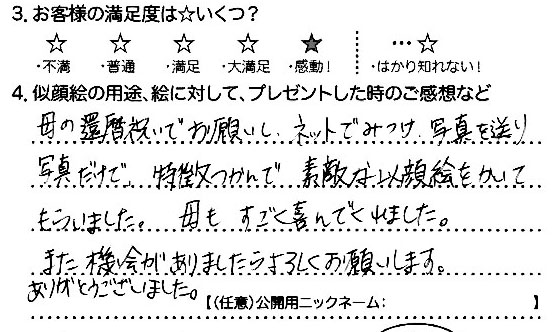 3. お客様の満足度は☆いくつ?
☆ ☆ ☆ ☆ ★ …☆
・不満 ・普通 ・満足 ・大満足 ・感動! ・はかり知れない!
4. 似顔絵の用途、絵に対して、プレゼントした時のご感想など
母の還暦祝いでお願いし、ネットでみつけ、写真を送り
写真だけで、特徴つかんで素敵な似顔絵をかいて
もらいました。母もすごく喜んでくれました。
また機会がありましたらよろしくお願いします。
ありがとうございました。
【(任意)公開用ニックネーム: 】